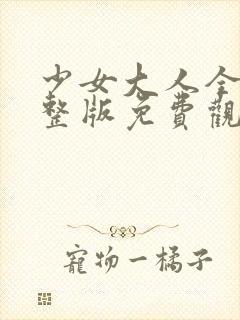 少女大人全
整版免費觀
寵物一橘子